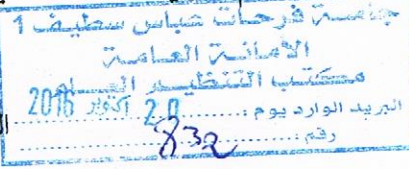 جامعة فرحات عباس سطيف 1
الأمانة العامة
مكتب التنظيم العام
البريد الوارد يوم : 20 أكتوبر 2016
رقم : 832